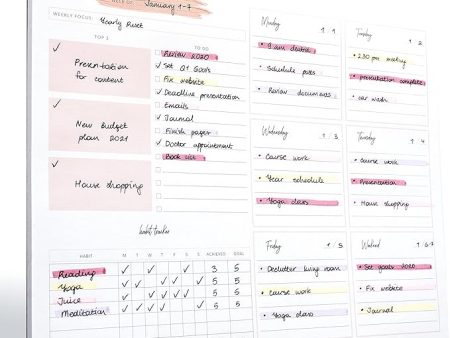 WEEK OF: January 1-7
WEEKLY FOCUS: Yearly Reset
TOP 3
✓ Presentation
for content
✓ New budget
plan 2021
✓ House shopping
TO DO
Review 2020
✓ Set Q1 Goals
Fix website
✓ Deadline presentation
Emails
✓ Journal
Finish paper
✓ Doctor appointment
Book
Monday 1 1
• 9 am dentist
• Schedule
• Review documents
Tuesday 1 2
2:30 pm meeting
• presentation complete
• car wash
Wednesday 1 3
• Course work
• Year schedule
• Yoga class
Thursday 1 4
• Course work
• Presentation
• House shopping
habit tracker
HABIT M T W T F S S ACHIEVED GOAL
Reading ✓ ✓ ✓ 3 5
Yoga ✓ ✓ ✓ ✓ 5
Juice ✓ ✓ ✓ ✓ 5
Meditation ✓ ✓ ✓ 5
Friday 1 5
• Declutter living room
• Course work
• Yoga class
Weekend 1 6-7
• Set goals 2020
• Fix website
• Journal